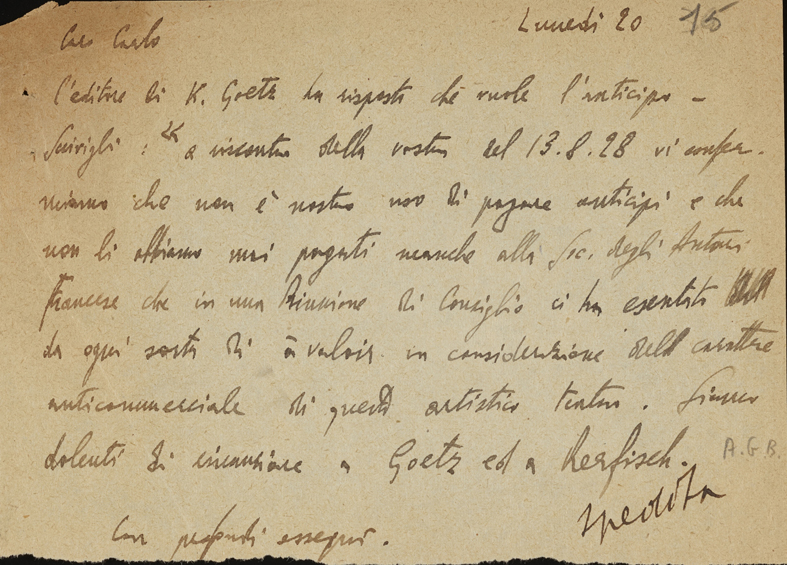 Lunedì 20 15
Caro Carlo
l'editore di K. Goetz ha risposto che vuole l'anticipo –
Scrivigli : " a riscontro della vostra del 13.8.28 vi confer-
miamo che non è nostro uso di pagare anticipi e che
non li abbiamo mai pagati neanche alla Soc. degli Autori
francese che in una Riunione di Consiglio ci ha esentati
da ogni sorta di à valoir in considerazione del carattere
anticommerciale di questo artistico teatro. Siamo
dolenti di rinunziare a Goetz ed a Kerfisch.
A.G.B.
spedita
Con profondi ossequi.